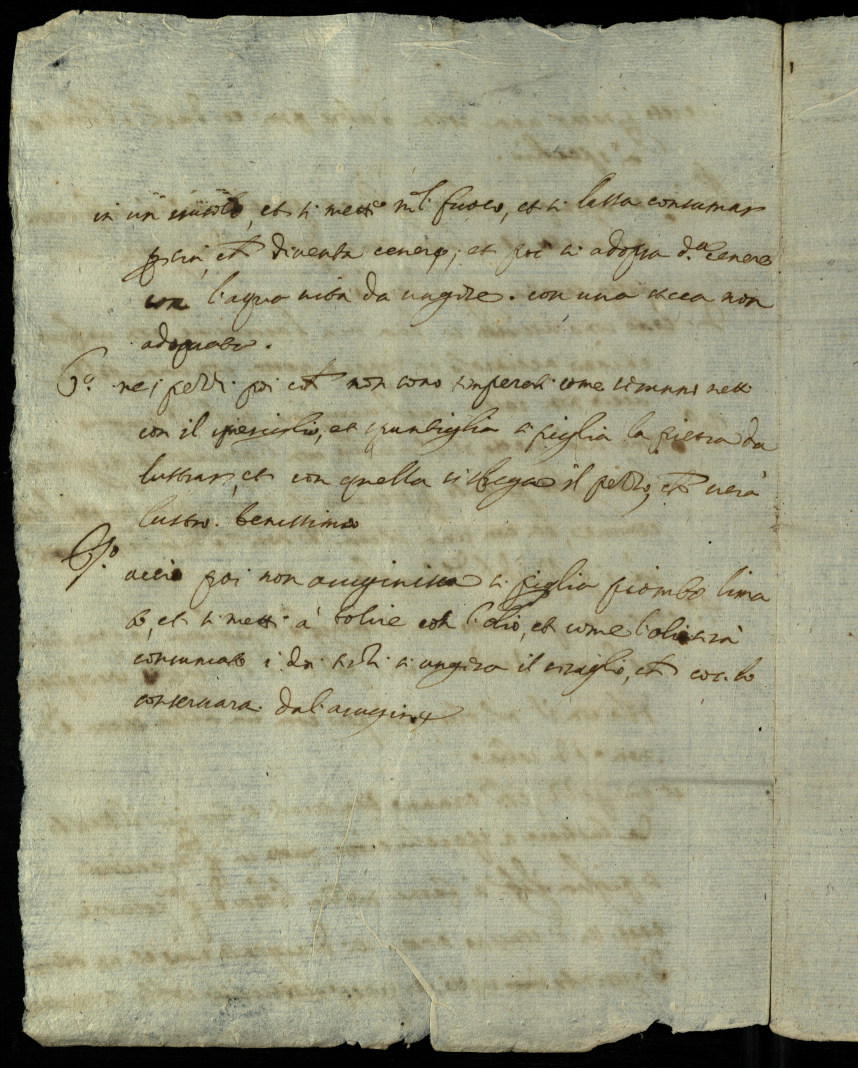 in un crisolo, et si mette nel fuoco, et si lassa consumar
sin, che diventa cenere, et poi si adopra d.a cenere
con l'aqua vita da ungere. con una secca non
adoprata.
6.o nei pezzi poi che non sono temperati come saranno netti
con il smeriglio, et spuntiglia si piglia la pietra da
lustrar, et con quella si frega il pezzo, che verà
lustro benissimo
7.o acciò poi non aruginisca si piglia piombo lima
to, et si mette à bolire con l'olio, et come l'olio sarà
consumato i doi terzi si ungera il , che cosi lo
conservara dal arugine